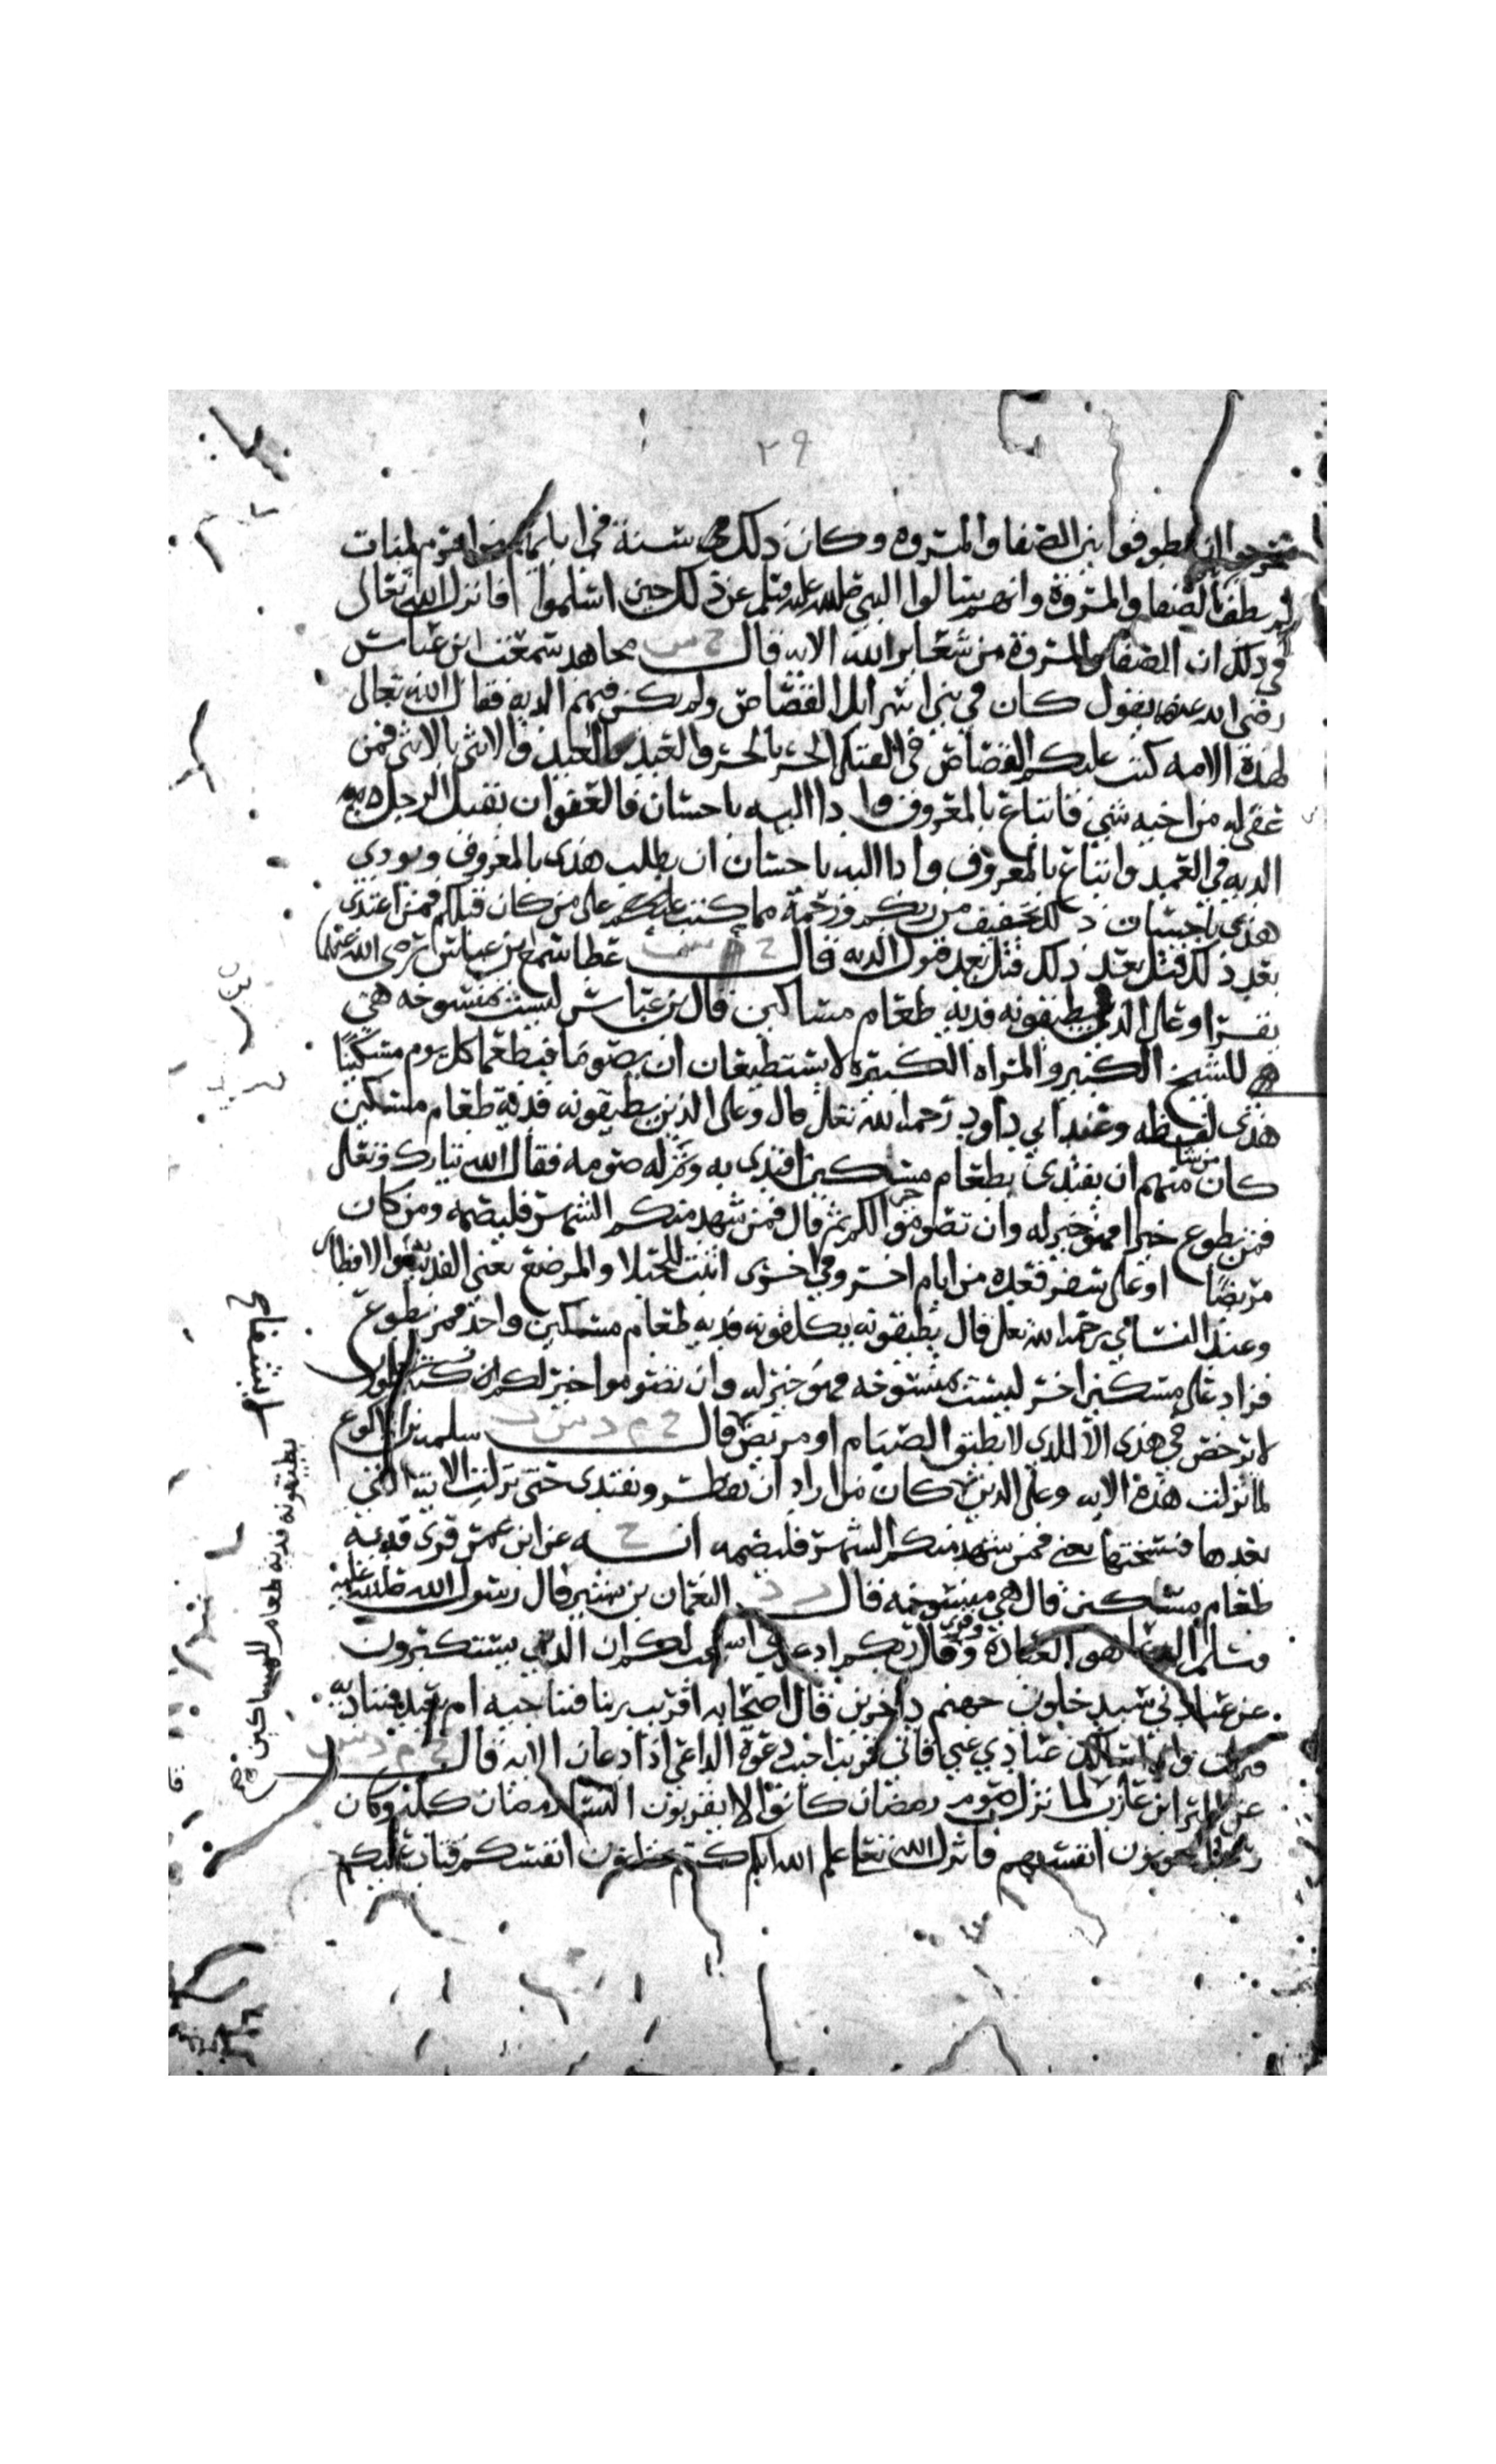 ٢٩
ان يطوفوا بين الصفا والمروه وكان ذلك سنة في ابايهم من احرم لمنات
لم يطف بالصفا والمروة وانهم سالوا النبي صلى الله عليه وسلم عن ذلك حين اسلموا فانزل الله تعالى
في ذلك ان الصفا والمروة من شعاير الله الايه قال خ س مجاهد سمعت ابن عباس
رضى الله عنه يقول كان في بني اسرايل القصاص ولم يكن فيهم الديه فقال الله تعالى
لهذة الامه كتب عليكم القصاص في القتلى الحر بالحر والعبد بالعبد والانثى بالانثى فمن
عفى له من اخيه شي فاتباع بالمعروف وادا اليه باحسان فالعفو ان يقبل الرجل
الديه في العمد واتباع بالمعروف وادا اليه باحسان ان يطلب هذى بالمعروف ويودي
هذى باحسان ذلك تخفيف من ربكم ورحمة مما كتب عليكم على من كان قبلكم فمن اعتدى
بعد ذلك قتل بعد ذلك قتل بعد قبول الديه قال عطا سمع ابن عباس رضى الله عنهما
يقرا وعلى الذين يطيقونه فديه طعام مساكين قال بن عباس ليست منسوخه هي
للشيخ الكبير والمراه الكبيره لا يستطيعان ان يصوما فيطعما كل يوم مسكينًا
هذى لفظه وعند ابي داود رحمه الله تعلى قال وعلى الذين يطيقونه فدية طعام مسكين
كان من شا منهم ان يفتدى بطعام مسكين افتدى به وتم له صومه فقال الله تبارك وتعلى
فمن تطوع خيرا فهو خير له وان تصوموا خير لكم ثم قال فمن شهد منكم الشهر فليصمه ومن كان
مريضًا او على سفر فعدة من ايام اخر وفي اخرى اثبت للحبلا والمرضع يعني الفديه والافطار
وعند النساي رحمه الله تعلى قال يطيقونه يكلفونه فديه طعام مسكين واحد فمن تطوع
فزاد على مسكين اخر ليست منسوخه فهو خير له وان تصوموا خير لكم ان كنتم تعلمون
لا ترخص في هذى الا للذي لا يطيق الصيام او مريض قال خ م د س ت سلمه بن الاكوع
لما نزلت هذة الايه وعلى الذين كان من اراد ان يفطر ويفتدى حتى نزلت الايه التي
بعدها فنسختها يعني فمن شهد منكم الشهر فليصمه انه خ عن ابن عمر قرى فديه
طعام مسكين قال هي منسوخه قال النعمان بن بشير قال رسول الله صلى الله عليه
وسلم الدعا هو العبادة وقرى وقال ربكم ادعوني استجب لكم ان الذين يستكبرون
عن عبادتي سيدخلون جهنم داخرين قال اصحابه اقريب ربنا فنناجيه ام بعيد فنناديه
فنزلت واذا سالك عبادي عني فاني قريب اجيب دعوة الداعي اذا دعان الايه قال
عن البرا ابن عازب لما نزل صوم رمضان كانوا لا يقربون النسا رمضان كله وكان
رجال يخونون انفسهم فانزل الله تعا علم الله انكم كنتم تختانون انفسكم فتاب عليكم
يطيقونه فديه طعام للمساكين